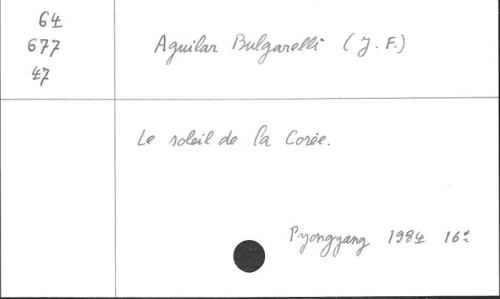 64
677
47
Aguilar Bulgarelli (J. F.)
Le soleil de la Corée.
Pyongyang 1984 16°